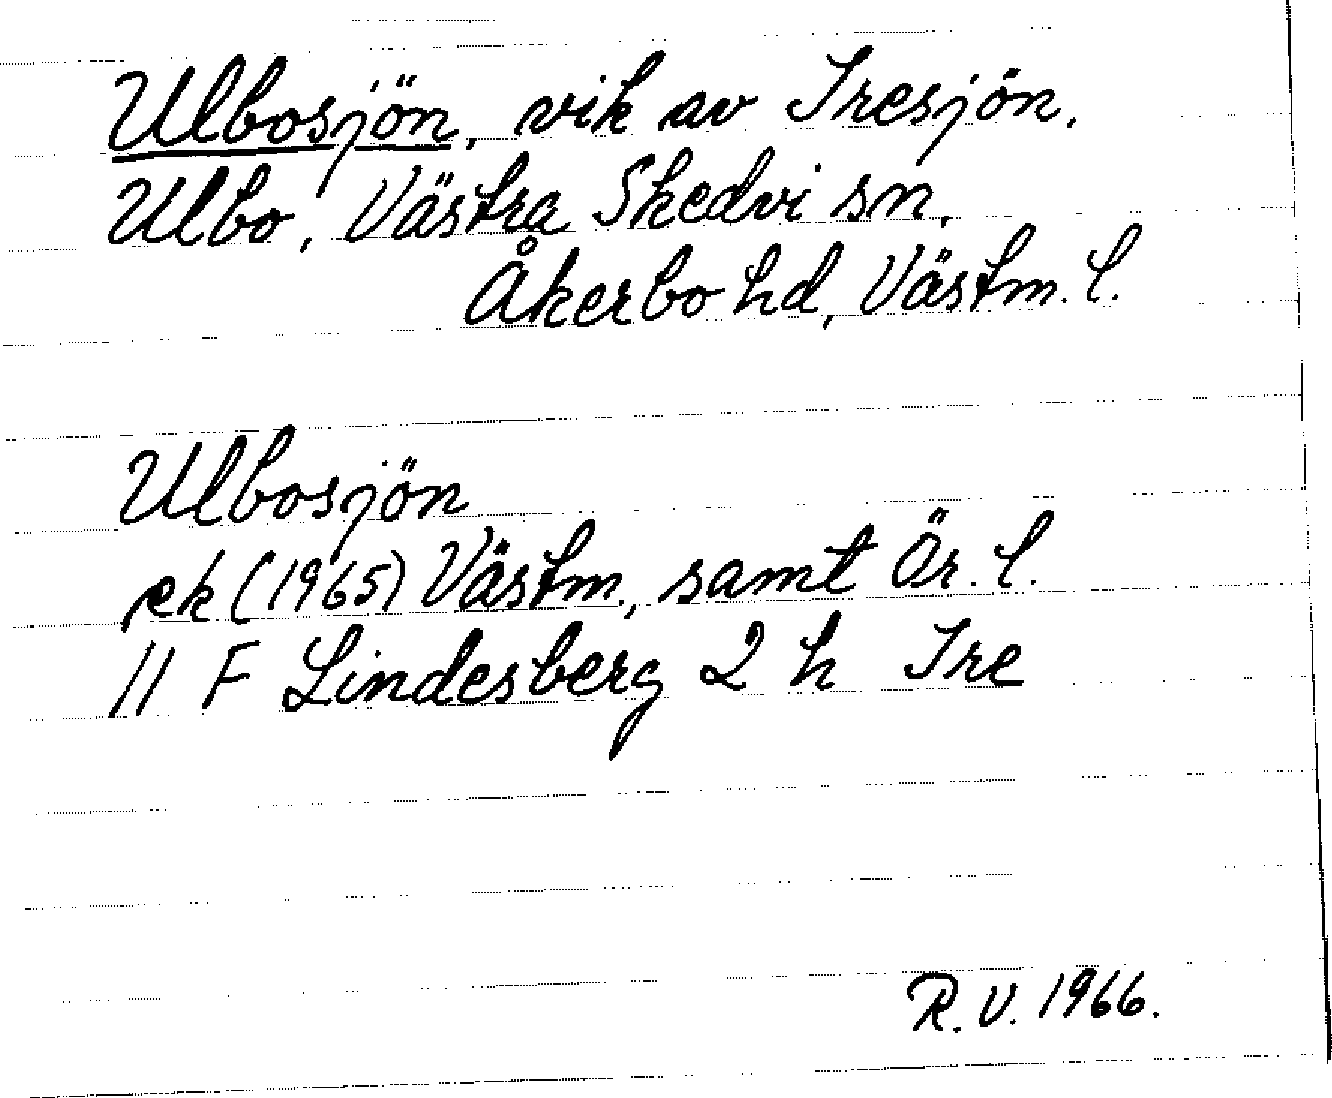 Ulbosjön, vik av Iresjön,
Ulbo, Västra Skedvi sn,
Åkerbo hd, Västm. l.
Ulbosjön
ek (1965) Västm, samt Ör. l.
11 F Lindesberg 2 h Ire
R. V. 1966.